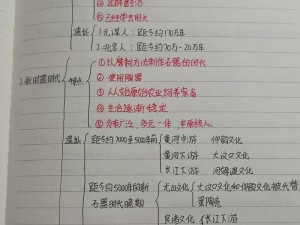 ④ 已经学会用火
遗址
1.元谋人：距今约170万年
2.北京人：距今约70万-20万年
2.新石器时代
特点
①以磨制方法制作石器的时代
②使用陶器
③人们原始农业、饲养家畜
④生活逐渐稳定
⑤分布广泛，多元一体，中原核心。
遗址
距今约7000至5000年前
黄河中游 仰韶文化
黄河下游 大汶口文化
长江下游 河姆渡文化
距今约5000年的新石器时代晚期
龙山文化
大汶口文化和仰韶文化被代替
黑陶
良渚文化 长江下游